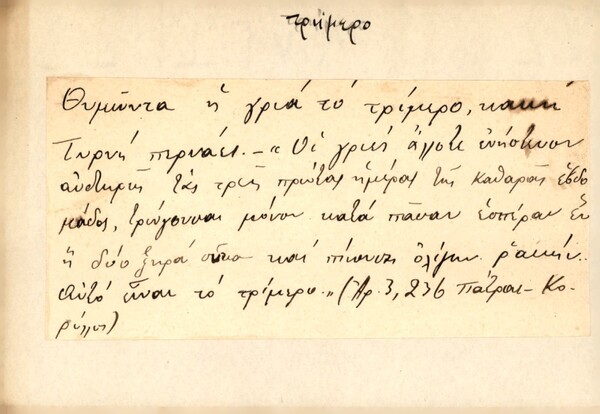 τρίμερο
Θυμῶντα ἡ γριά τό τρίμερο, κακή
Τυρνή περνάει. — "Οἱ γριές ἄλλοτε ἐνήστευον
αὐστηρῶς τάς τρεῖς πρώτας ἡμέρας τῆς καθαρᾶς ἑβδο
μάδος, τρώγουσαι μόνον κατά πᾶσαν ἑσπέραν ἕν
ἤ δύο ξηρά σῦκα καί πίνουσαι ὀλίγην ρακήν.
Αὐτό εἶναι τό τρίμερο." (Ἀρ. 3, 236 Πάτραι - Κο-
ρύλλος)